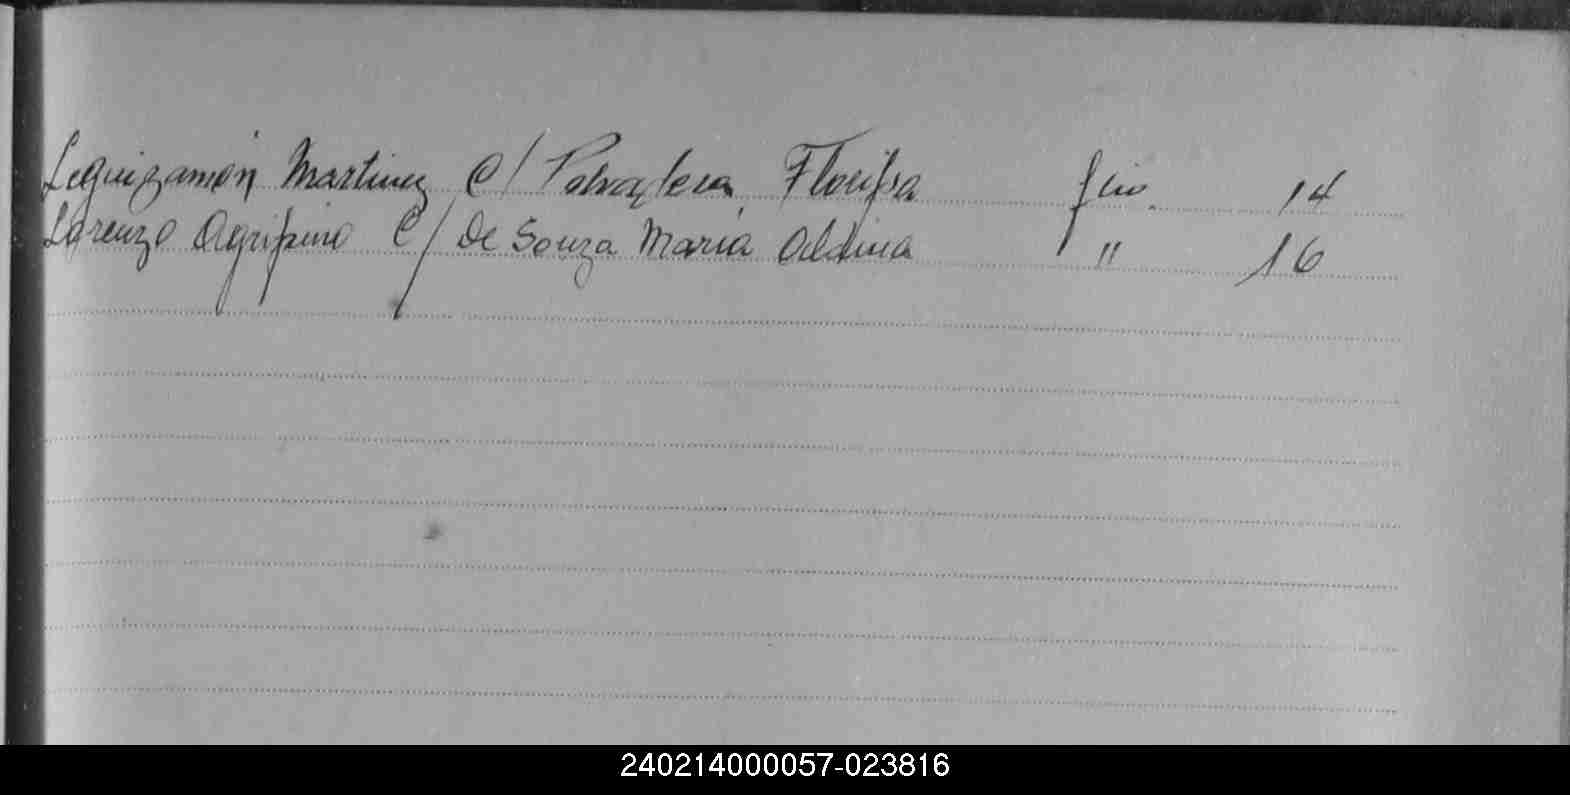 Leguizamón Martinez C/ Floripa fiio. 14
Lorenzo Agripino C/ De Souza Maria " 16
240214000057-023816